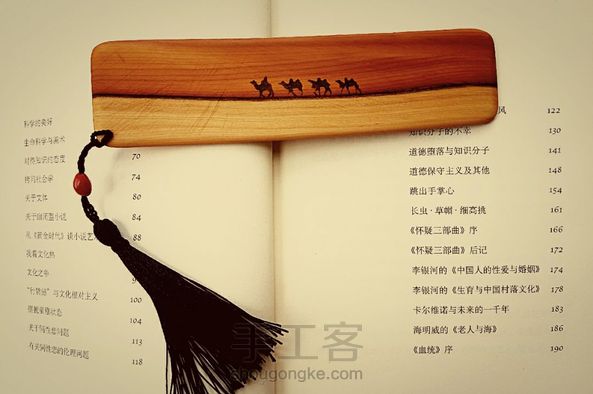 科学的美好
生命科学与骗术
对待知识的态度 70
拷问社会学 74
关于文体 80
关于幽闭型小说 84
从《黄金时代》谈小说艺术 88
我看文化热
文化之争
“行货感”与文化相对主义 100
摆脱童稚状态 104
关于同性恋问题 113
有关同性恋的伦理问题 118
风 122
知识分子的不幸 130
道德堕落与知识分子 141
道德保守主义及其他 148
跳出手掌心 154
长虫·草帽·细高挑 161
《怀疑三部曲》序 166
《怀疑三部曲》后记 172
李银河的《中国人的性爱与婚姻》 174
李银河的《生育与中国村落文化》 178
卡尔维诺与未来的一千年 183
海明威的《老人与海》 186
《血统》序 190
手工客
shougongke.com